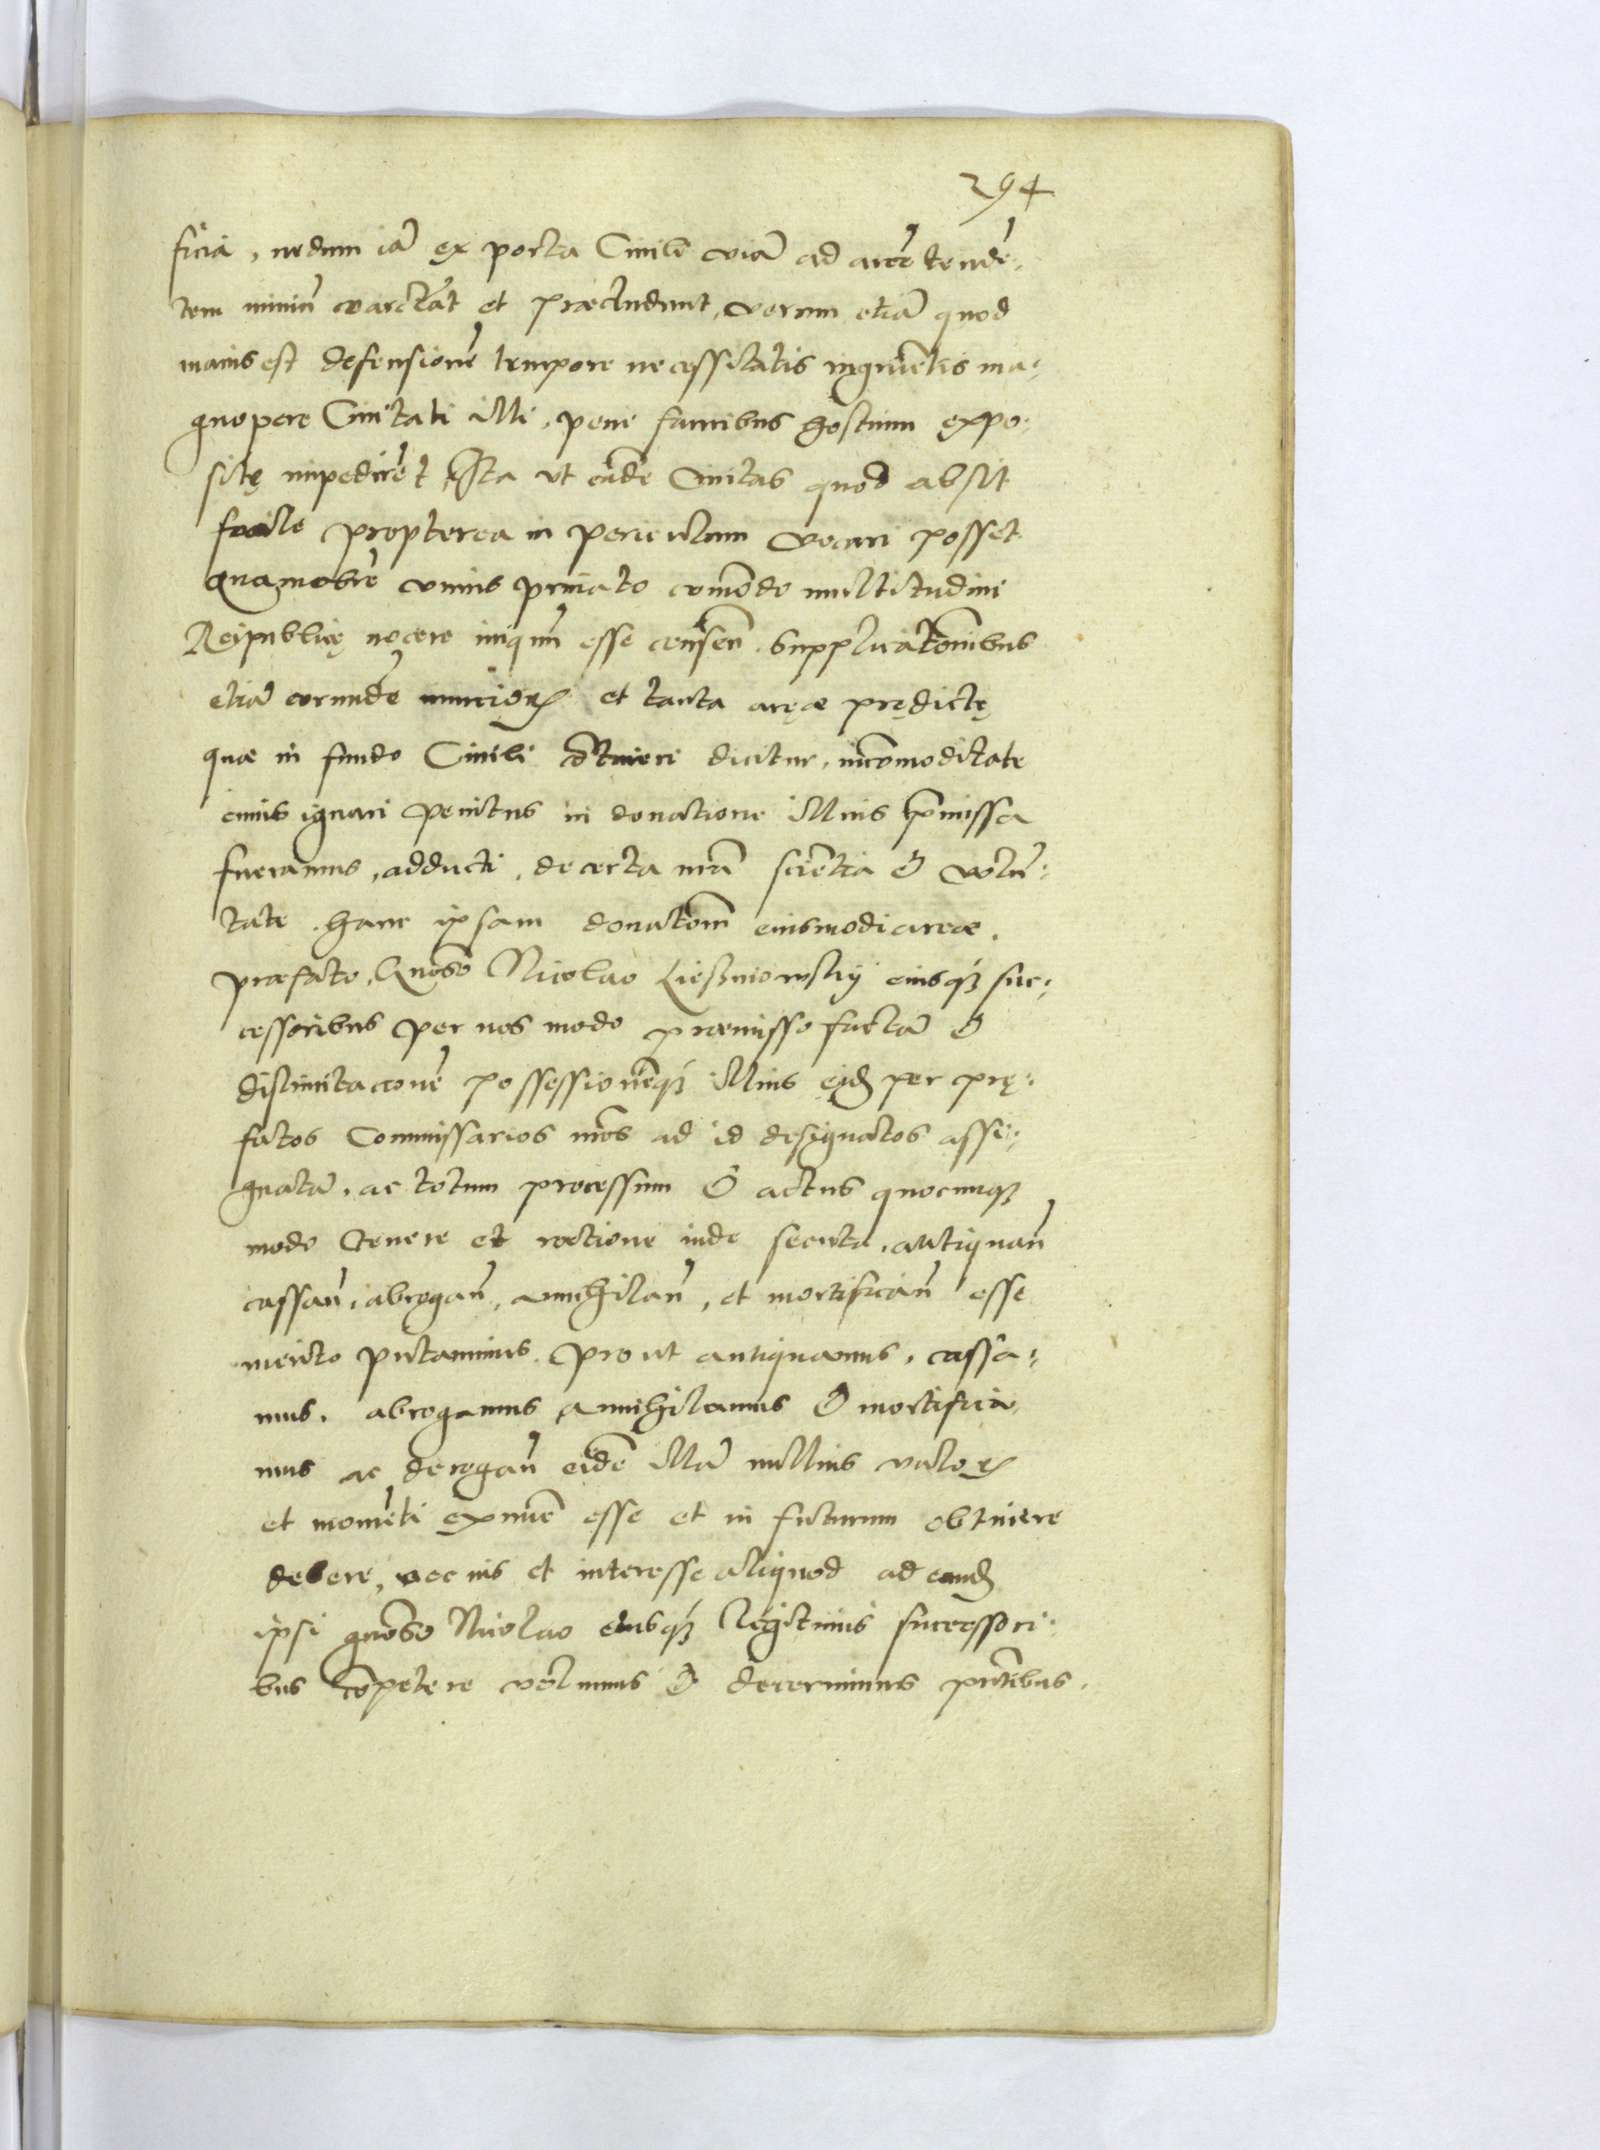 294
ficia, nedum iā ex porta Civile viā ad arcē tendē:
tem nimiū coarctāt et præcludunt, verum etiā quod
maius est defensionē tempore necessitatis ingruētis ma:
gnopere Civitati illi, pene faucibus hostium expo:
sitę impedirēt, Ita ut eadē Civitas quod absit
facile propterea in periculum vocari posset
quamobrē unius privato cōmodo multitudini
Reipublicę nocere iniquū esse censeñ. Supplicatōnibus
etiā eorundē nuncioꝝ et tanta aręæ prędictę
quæ in fundo Civili cōtineri dicitur, incōmoditate
cuius ignari penitus in donatione illius p̄missa
fueramus, adducti, de certa nrā sciētia & volū:
tate hanc ipsam donatōm eiusmodi areæ,
præfato, Gnoso Nicolao Lieszniowskÿ eiusqȝ suc:
cessoribus per nos modo præmisso factā &
dislimitacionē possessionēqȝ illius eid per prę:
fatos Commissarios nros ad id designatos assi:
gnatā, ac totum processum & actus quocunqȝ
modo tenere et ractione inde secuta, antiquañ
cassañ, abrogañ, annihilañ, et mortificañ esse
merito putavimus, prout antiquamus, cassa:
mus, abrogamus, annihilamus & mortifica
mus ac derogañ eādē illā nullius valoꝝ
et momēti exnūc esse et in futurum obtinere
debere, nec ius et interesse aliquod ad eand
ipsi gnoso Nicolao eiusqȝ legitimis successori:
bus cōpetere volumus & decernimus pñtibus.